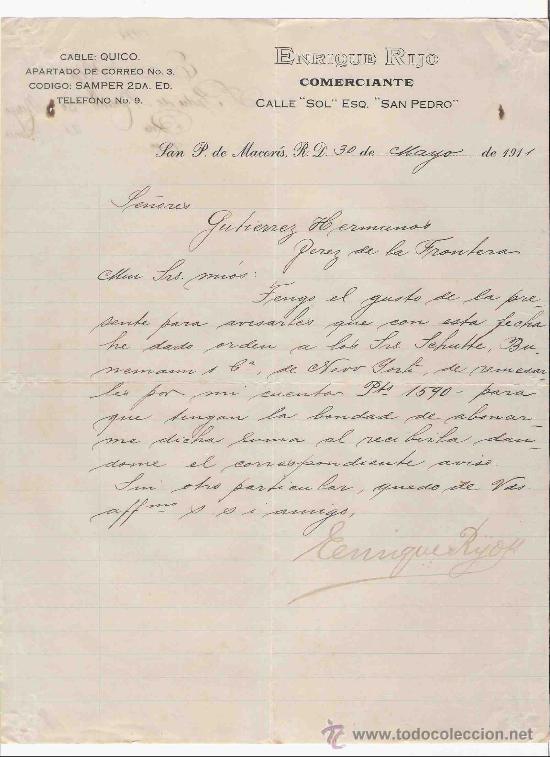 CABLE: QUICO.
APARTADO DE CORREO No. 3.
CODIGO: SAMPER 2DA. ED.
TELEFONO No. 9.
ENRIQUE RIJO
COMERCIANTE
CALLE "SOL" ESQ. "SAN PEDRO"
San P. de Macorís, R. D. 30 de Mayo de 1911
Señores
Gutierrez Hermanos
Jerez de la Frontera
Mui Srs. mios:
Tengo el gusto de la pre-
sente para avisarles que con esta fecha
he dado orden a los Srs Schutte, Bu-
nemann & Cª, de Nova York, de remesar-
les por mi cuenta Pts 1590- para
que tengan la bondad de abonar-
me dicha suma al recibirla dan-
dome el correspondiente aviso.
Sin otro particular, quedo de Vds
affmo s s i amigo,
Enrique Rijo
todocoleccion
www.todocoleccion.net